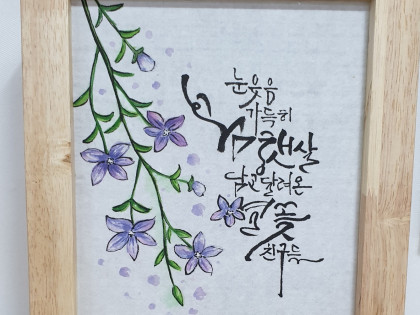 눈웃음
가득히
봄햇살
담고 달려온
봄꽃
친구들